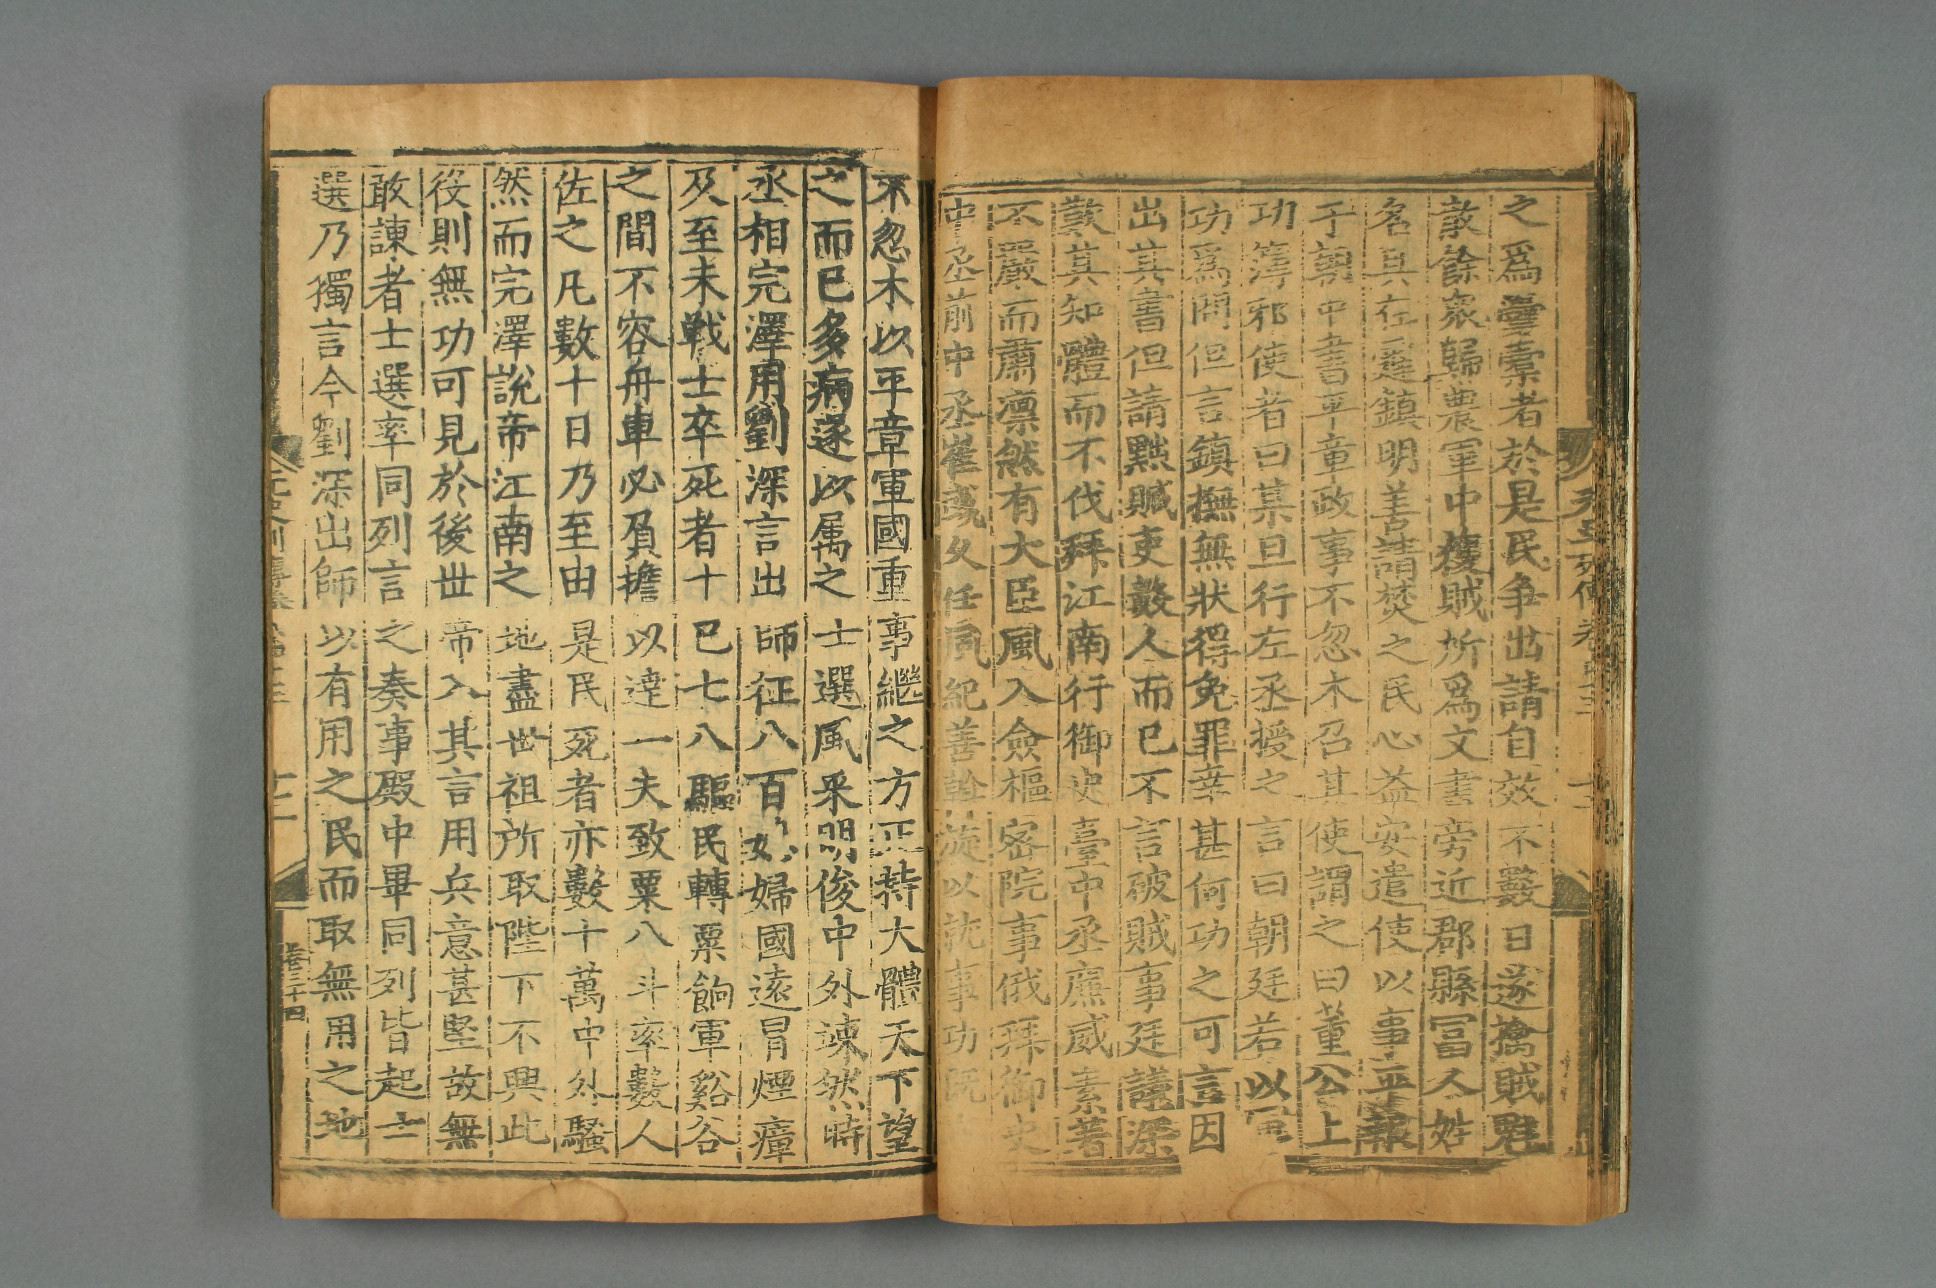 之爲蠹橐者於是民爭出請自效不數日遂擒賊魁
散餘衆歸農軍中獲賊所爲文書旁近郡縣冨人姓
名具在霆鎮明善請焚之民心益安遣使以事並報
于朝中書平章政事不忽木召其使謂之曰董公上
功簿邪使者曰某旦行左丞授之言曰朝廷若以軍
功爲問但言鎮撫無狀得免罪幸甚何功之可言因
出其書但請黜贓吏數人而已不言破賊事廷議深
歎其知體而不伐拜江南行御史臺中丞廉威素著
不嚴而肅凛然有大臣風入僉樞密院事俄拜御史
中丞前中丞崔彧久任風紀善斡旋以就事功既
不忽木以平章軍國重事繼之方正持大體天下望
之而已多病遂以属之士選風采明俊中外竦然時
丞相完澤用劉深言出師征八百媳婦國遠冒煙瘴
及至未戰士卒死者十已七八驅民轉粟餉軍谿谷
之間不容舟車必負擔以達一夫致粟八斗率數人
佐之凡數十日乃至由是民死者亦數十萬中外騷
然而完澤說帝江南之地盡世祖所取陛下不興此
役則無功可見於後世帝入其言用兵意甚堅故無
敢諌者士選率同列言之奏事殿中畢同列皆起士
選乃獨言今劉深出師以有用之民而取無用之地
卷三十四